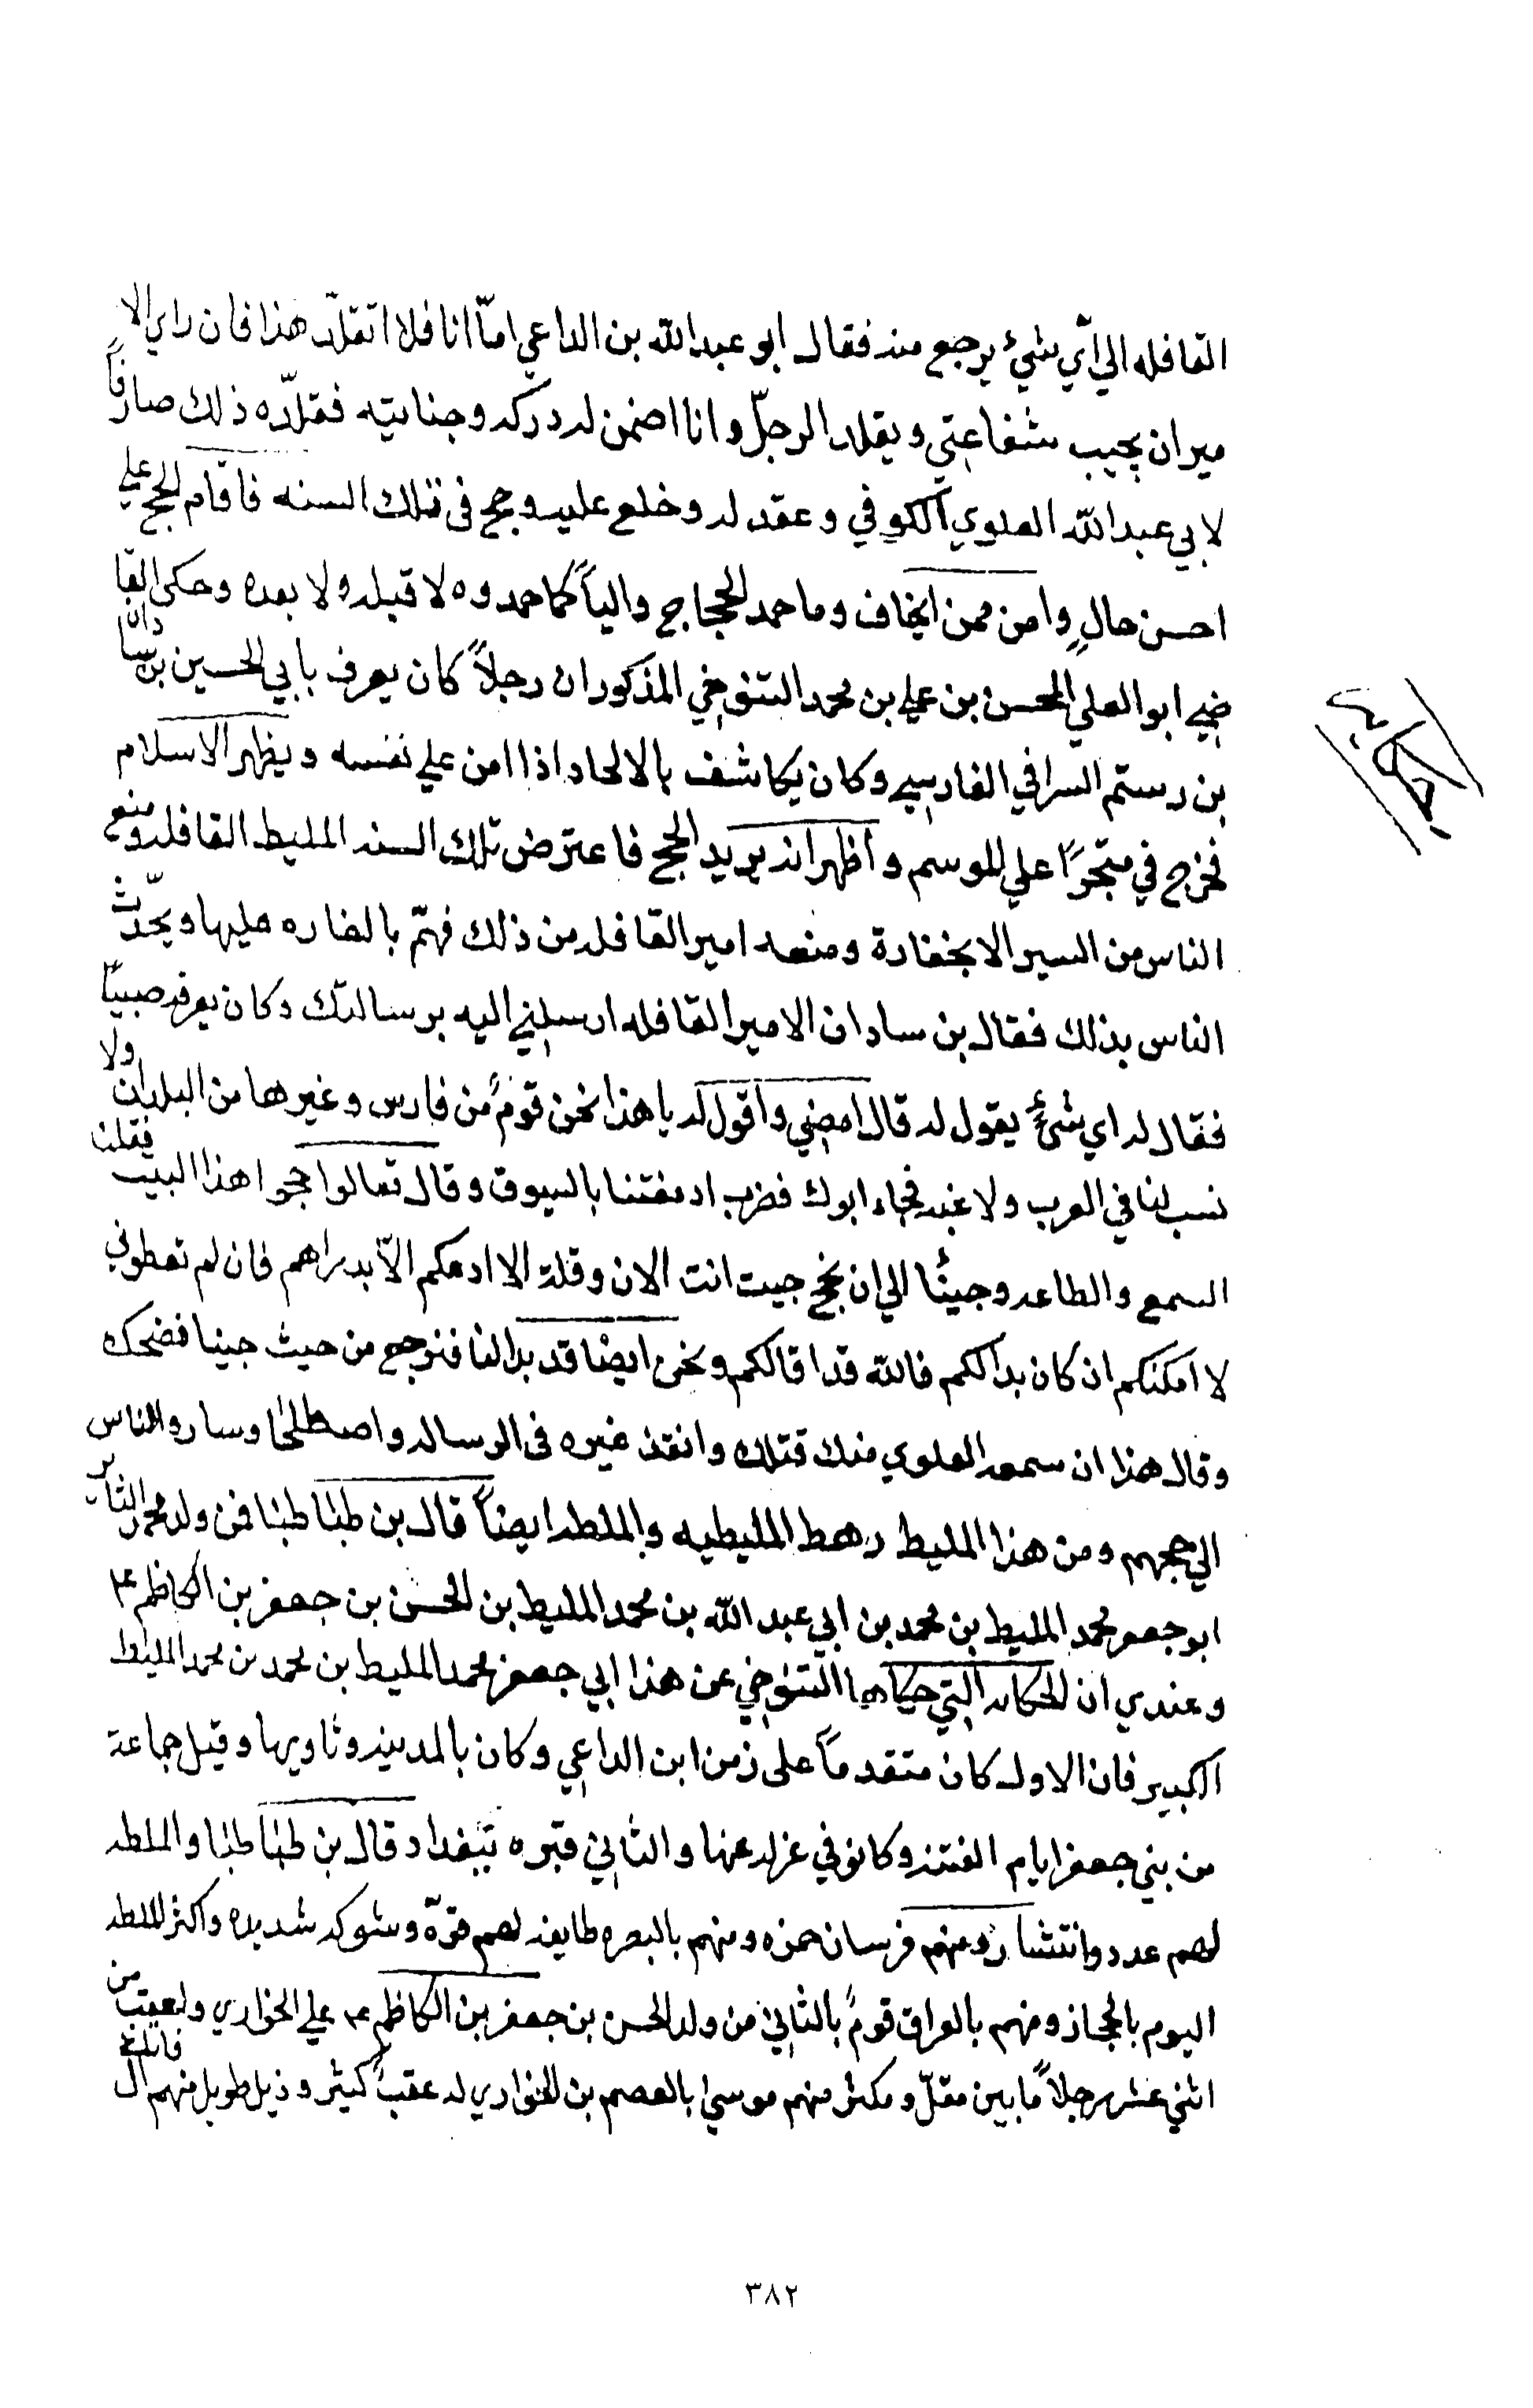 القافله الي اّي شيء يرجع منه فقال ابو عبدالله بن الداعي امّا انا فلا اتقلّد هذا فان راي الا
مير ان يجيب شفاعتي ويقلد الرجلّ وانا اضمن له دركه وجنايته فقلدّه ذلك صارفاً
لابي عبدالله العلوي الكوفي وعقد له وخلع عليه وحج في تلك السنه فاقام الحج علي
احسن حالٍ وامن ممن ايخاف وما حمد الحجاج والياً كما حمدوه لا قبله ولا بعده وحكى القا
ضي ابو العلي المحسن بن علي بن محمد التنوخي المذكور ان رجلاً كان يعرف بابي الحسين بن سادان
بن رستم السرافي الفارسي وكان يكاشف بالالحاد اذا امن علي نفسه ويظهر الاسلام
فخرج في متجرًا علي للوسم واظهر انه يريد الحج فاعترض تلك السنه المليط القافله ومنع
الناس من السير الا بخفارة ومنعه امير القافله من ذلك فهمّ بالغاره عليها ويحدّث
الناس بذلك فقال بن سادان الامير القافله ارسلني اليه برسالتك وكان يعرفه صبيّاً
فقال له اي شيءٍ يقول له قال امضي واقول له يا هذا نحن قومٌ من فارس وغيرها من البلدان ولا
نسب لنا في العرب ولا عبد فجاء ابوك فضرب ادمغتنا بالسيوف وقال تعالوا حجوا هذا البيت فقلنا
السمع والطاعه وجينًا الي ان نحج جيت انت الان وقلت لا ادعكم الاّ بدراهم فان لم تعطوني
لا امكنكم ان كان بدالكم فالله قد اقالكم ونحن ايضًا قد بدا لنا فنرجع من حيث جينا فضحك
وقال هذا ان سمعه العلوي منك قتلك وانفذ غيره في الرساله واصطلحا وساروا الناس
الي حجهم ومن هذا المليط رهط المليطيه والملطه ايضاً قال بن طباطبا فمن ولد محمد الثاير
ابو جعفر محمد المليط بن محمد بن ابي عبد الله بن محمد المليط بن الحسن بن جعفر بن الكاظم ع
وعندي ان الحكايه التي حكاها التنوخي عن هذا ابي جعفر محمد المليط بن محمد بن محمد المليط
الكبير فان الاول كان متقدماً على زمن ابن الداعي وكان بالمدينه وثاويها وقيل جماعة
من بني جعفر ايام الفتنه وكانو في عزله عنها والثاني قبره ببغداد قال بن طباطبا والملطه
لهم عدد وانتشار ومنهم فرسان حمزه ومنهم بالبصره طايفه لهم قوّة وشوكه شديده واكثر الملطه
اليوم بالحجاز ومنهم بالعراق قومٌ بالثاني من ولد الحسن بن جعفر بن الكاظم ع علي الخواري والعقب من
اثني عشر رجلاً مابين مقلّ ومكثر منهم موسي بالعصم بن الخواري له عقبٌ كثير وذيل طويل منهم ال فاتك
حكاية
٣٨٢